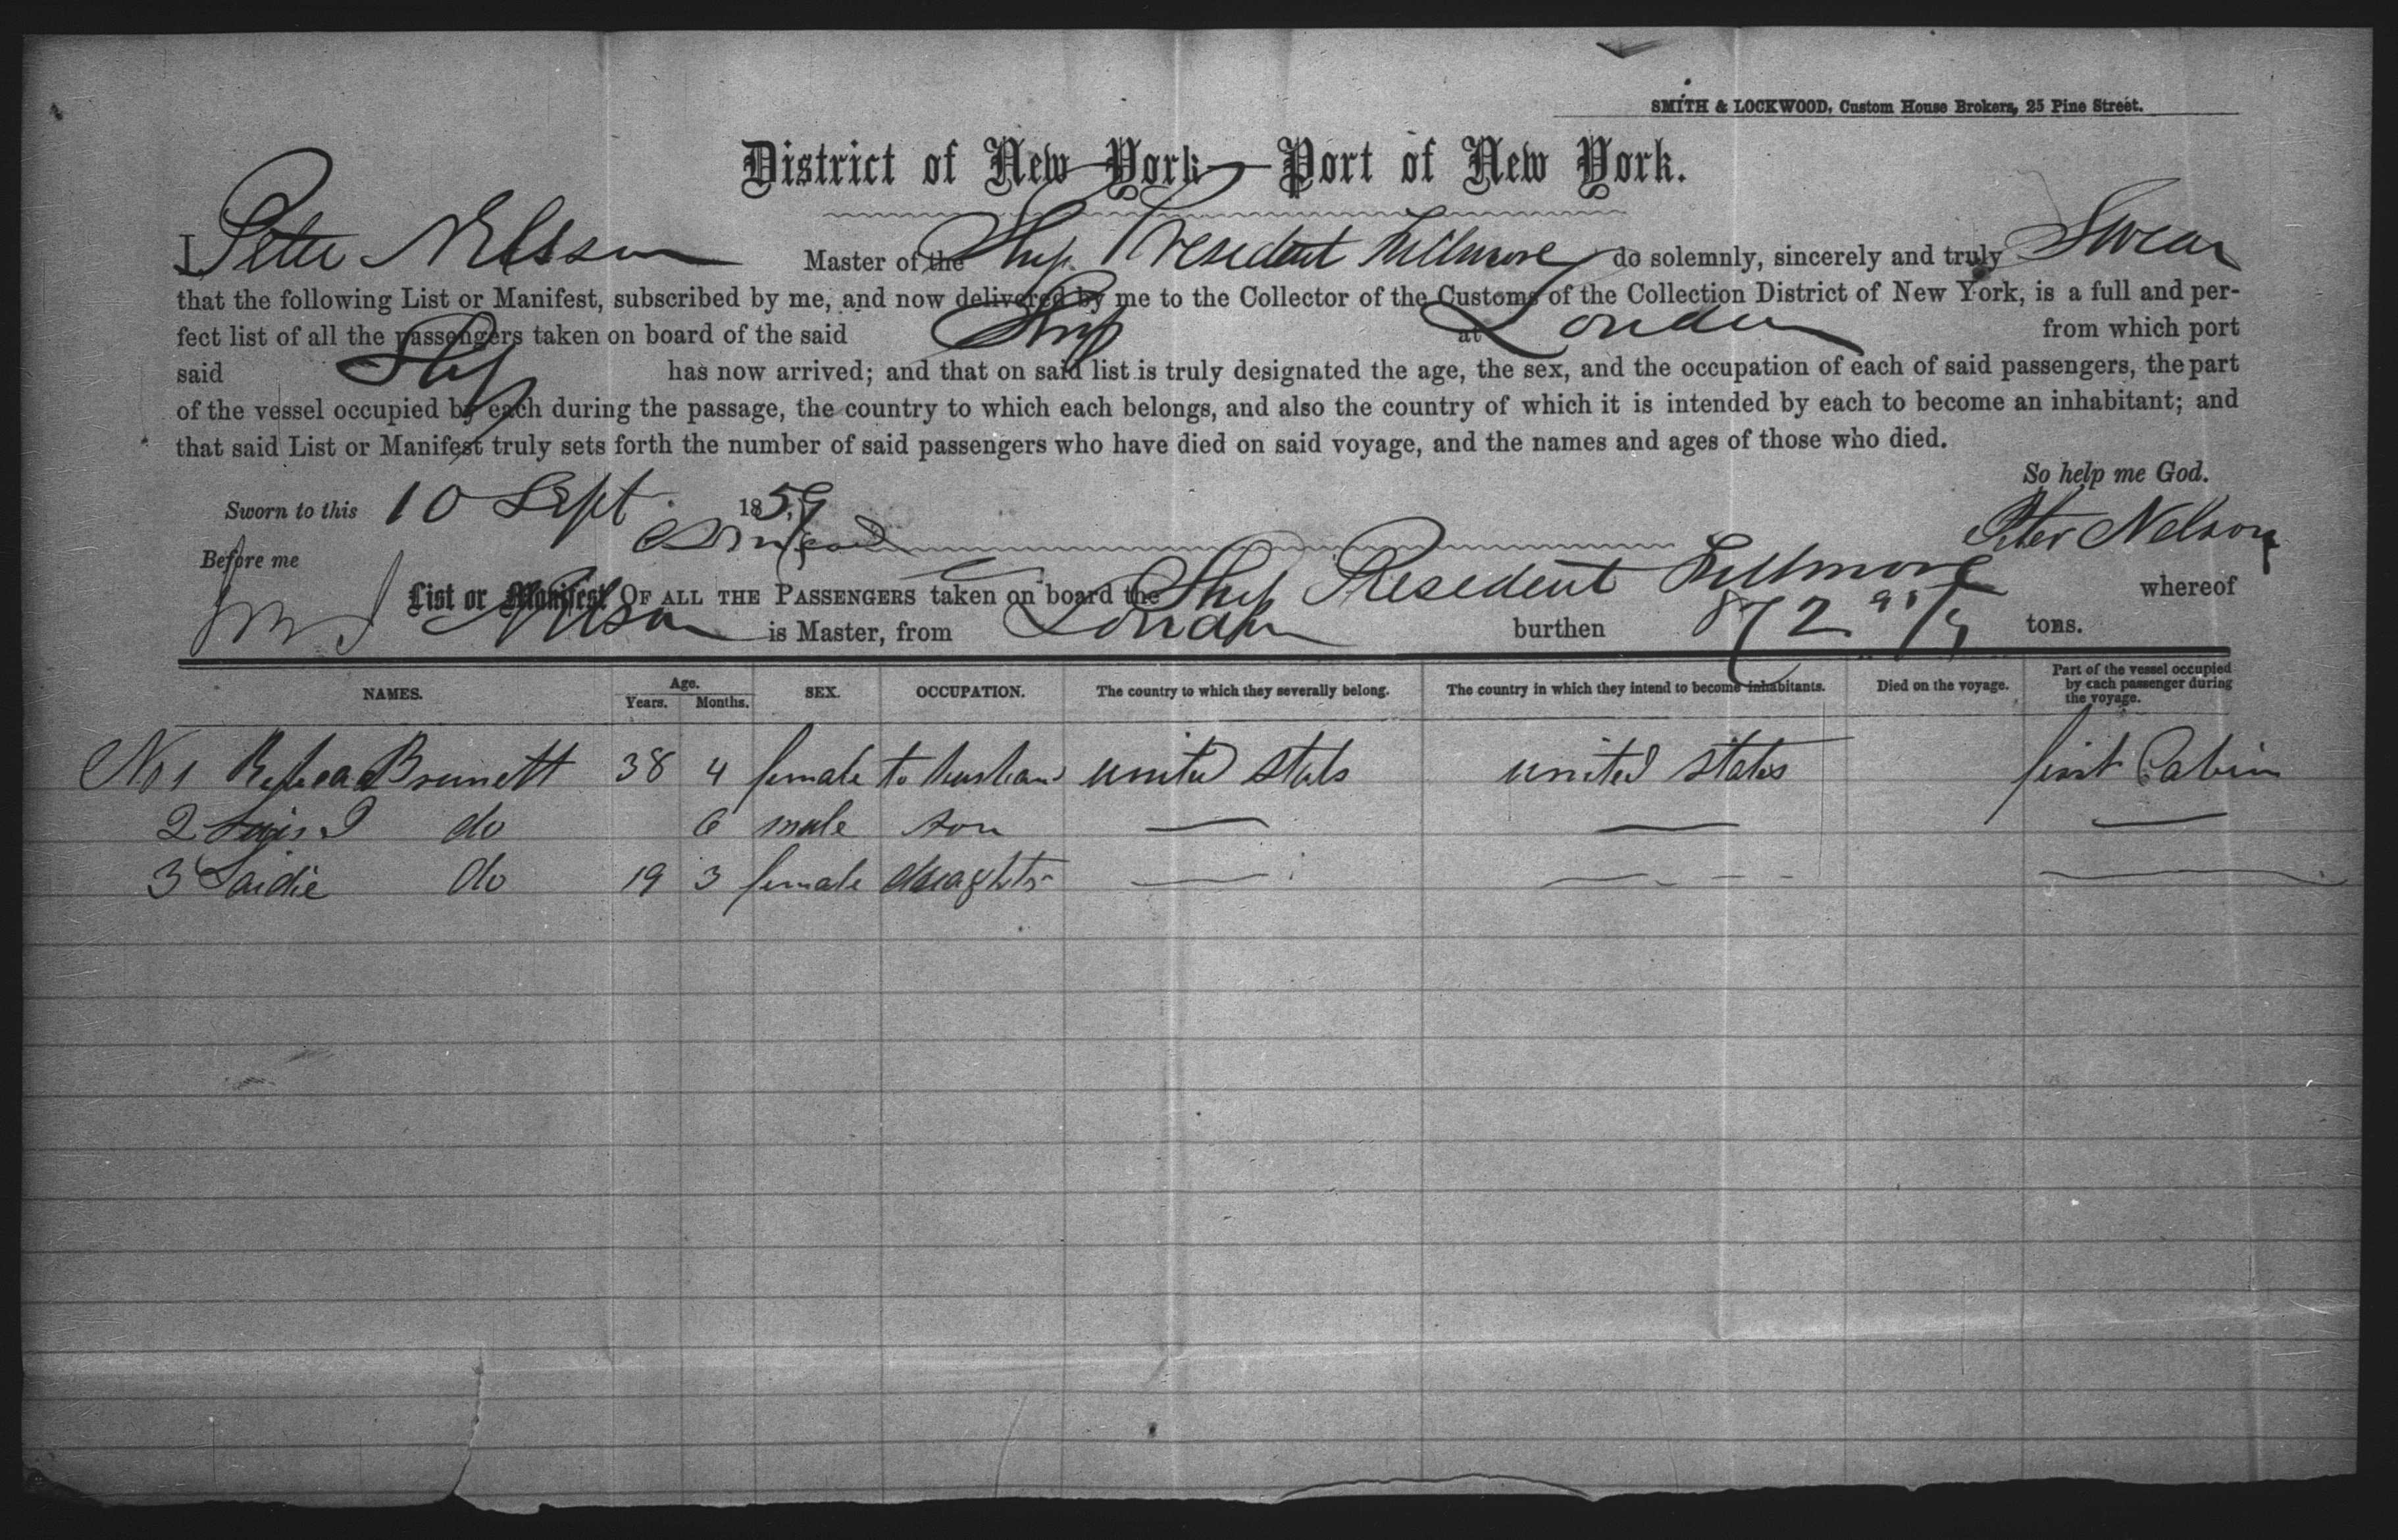 SMITH & LOCKWOOD, Custom House Brokers, 25 Pine Street.
District of New York—Port of New York.
I Peter Nelson Master of the Ship President Fillmore do solemnly, sincerely and truly Swear
that the following List or Manifest, subscribed by me, and now delivered by me to the Collector of the Customs of the Collection District of New York, is a full and per-
fect list of all the passengers taken on board of the said Ship at London from which port
said Ship has now arrived; and that on said list is truly designated the age, the sex, and the occupation of each of said passengers, the part
of the vessel occupied by each during the passage, the country to which each belongs, and also the country of which it is intended by each to become an inhabitant; and
that said List or Manifest truly sets forth the number of said passengers who have died on said voyage, and the names and ages of those who died.
So help me God.
Sworn to this 10 Sept 1859
Peter Nelson
Before me
List or Manifest OF ALL THE PASSENGERS taken on board the Ship Presedent Fillmore whereof
Nelson is Master, from London burthen 872 tons.
NAMES. Age. Years. Months. SEX. OCCUPATION. The country to which they severally belong. The country in which they intend to become inhabitants. Died on the voyage. Part of the vessel occupied by each passenger during the voyage.
No 1 Brunett 38 4 female to husband united stats united states first Cabin
2 do 6 male son — — —
3 Saidie do 19 3 female daughter — — —